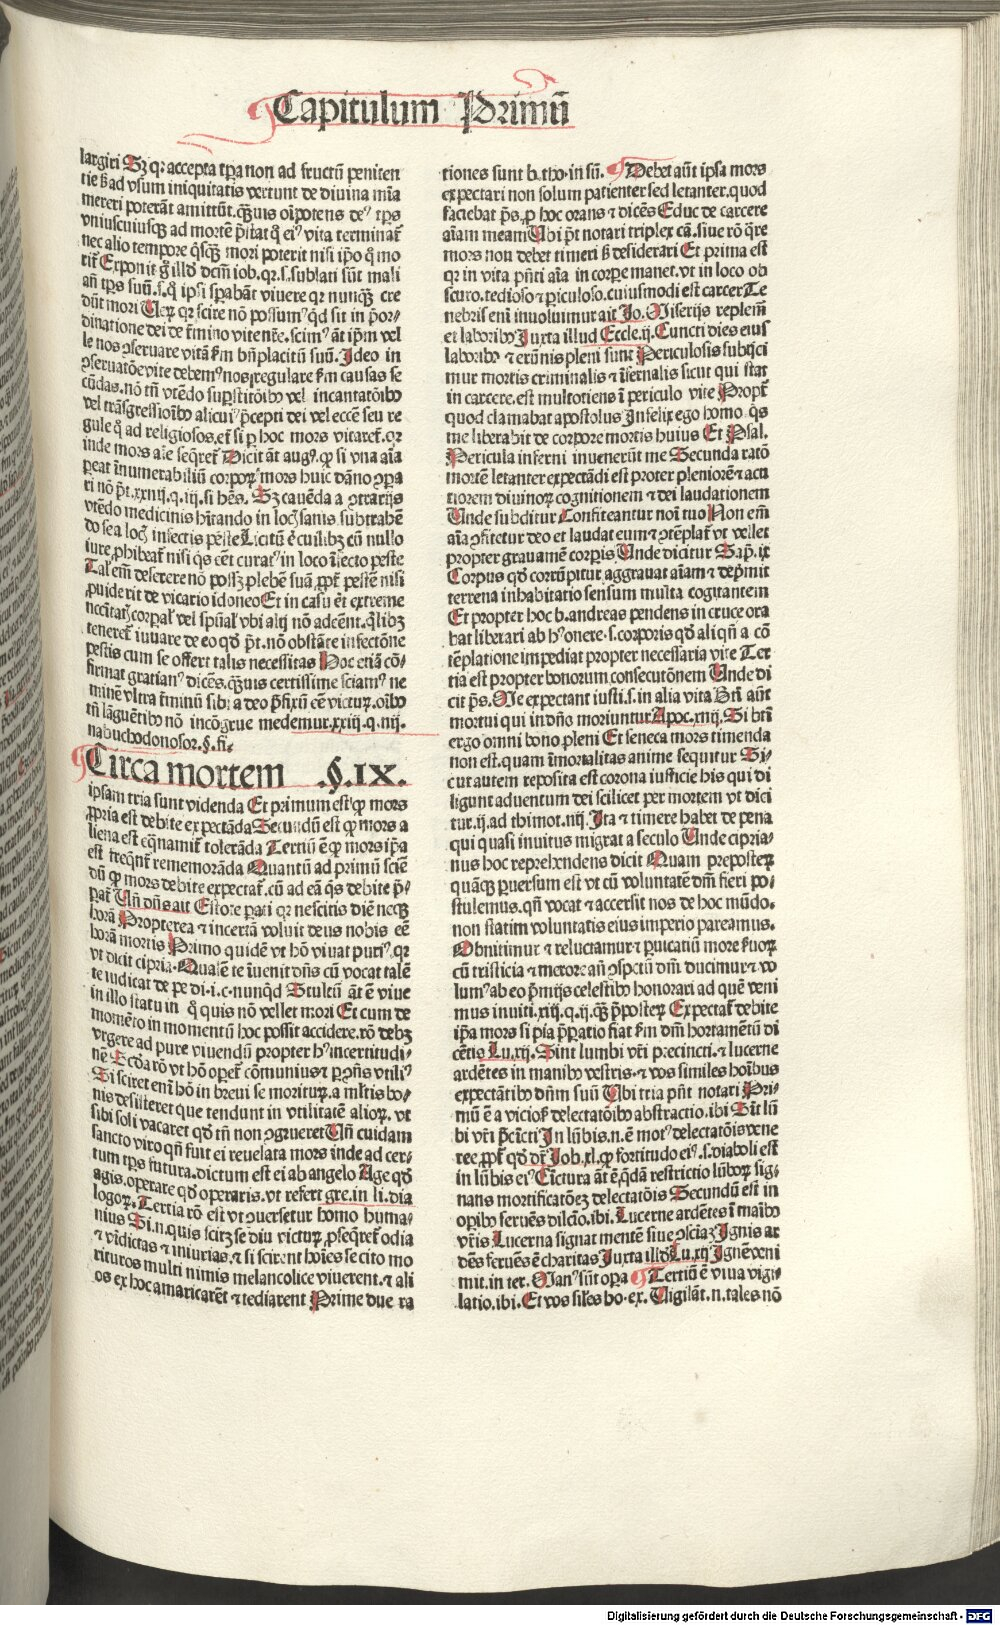 Capitulum Primū
largiri Sꝫ qꝛ accepta tꝑa non ad fructū peniten
tie sꝫ ad vsum iniquitatis vertunt de diuina mīa
mereri poterāt amittūt. qͣuis oīpotens deꝰ tꝑs
vniuscuiusqꝫ ad mortē p̄fitat qͦ eiꝰ vita terminat᷑
nec alio tempore qͥsqꝫ mori poterit nisi ipō qͦ mo
rit᷑ Exponit gͦ illd dcm̄ iob. qꝛ. s. sublati sūt mali
an̄ tꝑs suū. s. qͦ ipsi sꝑabāt viuere qꝛ nunqͣꝫ cre
dūt mori Uerꝫ qꝛ scire nō possumꝰ qͥd sit in p̄or⸗
dinatione dei de t̄mino vite nr̄e. scimꝰ āt ip̄m vel
le nos ꝯseruare vitā ẜm bn̄placitū suū. Ideo in
ꝯseruatōe vite debemꝰ nos regulare ẜm causas se
cūdas. nō tn̄ vtēdo suꝑstitōibꝰ vel incantatōibꝰ
vel trāsgressiōibꝰ alicuiꝰ p̄cepti dei vel eccē seu re
gule qͦ ad religiosos. et᷑ si ꝑ hoc mors vitaret᷑. qꝛ
inde mors aīe seqret᷑ Dicit āt augꝰ. ꝙ si vna aīa
ꝑeat īnumerabiliū corpoꝝ mors huic dāno ꝯpa
ri nō pt̄. xxiij. q. iij. si hēs. Sꝫ cauēda a ꝯtrarijs
vtēdo medicinis hītando in locꝭ sanis subtrahē
do se a locꝭ infectis peste Licitū ē cuilibꝫ cū nullo
iure ꝓhibeat᷑ nisi qͥs cēt curatꝰ in loco īfecto peste
Tal em̄ deserere nō possꝫ plebē suā ꝓpt᷑ pestē nisi
ꝓuiderit de vicario idoneo Et in casu ēt extreme
nccītatꝭ corꝑal᷑ vel spūal᷑ vbi alij nō adcēnt. qͥlibꝫ
teneret᷑ iuuare de eo qd̄ pt̄. nō obstāte infectōne
pestis cum se offert talis necessitas Hoc etiā cō⸗
firmat gratianꝰ dicēs. qͣuis certissime sciamꝰ ne
minē vltra t̄minū sibi a deo p̄fixū eē victuꝝ. oībꝰ
tn̄ lāguētibꝰ nō incōgrue medemur. xxiij. q. iiij.
nabuchodonosor. §. fi.
Circa mortem §. IX.
ipsam tria sunt videnda Et primum est ꝙ mors
ꝓpria est debite expectāda Secundū est ꝙ mors a
liena est eqͣnamit᷑ tolerāda Tertiū ē ꝙ mors ip̄a
est freqͣnt᷑ rememorāda Quantū ad primū sciē
dū ꝙ mors debite expectat᷑. cū ad eā qͥs debite p̄⸗
parat᷑ Un̄ dn̄s ait Estote parati qꝛ nescitis diē neqꝫ
horā Propterea ⁊ incertā voluit deus nobis eē
horā mortis Primo quidē vt hō viuat puriꝰ. qꝛ
vt dicit cipria. Qualē te īuenit dn̄s cū vocat talē
te iudicat de pe di. i. c. nunqͥd Stultū āt ē viue
in illo statu in qͦ quis nō vellet mori Et cum de
momēto in momentū hoc possit accidere. rō debꝫ
vrgere ad pure viuendū propter hꝰ incertitudi⸗
nē Scd̄a rō vt hō opet᷑ cōmunius ⁊ ꝑ ꝯn̄s vtiliꝰ
Si sciret eni hō in breui se moriturꝝ. a mltis bo⸗
nis desisteret que tendunt in vtilitatē alioꝝ. vt
sibi soli vacaret qd̄ tn̄ non ꝯgrueret Un̄ cuidam
sancto viro qn̄ fuit ei reuelata mors inde ad cer⸗
tum tꝑs futura. dictum est ei ab angelo Age qd̄
agis. operare qd̄ operaris. vt refert gre. in li. dia
logoꝝ. Tertia rō est vt ꝯuersetur homo huma⸗
nius Si. n. quis scirꝫ se diu victuꝝ ꝓseqret᷑ odia
⁊ vīdictas ⁊ iniurias. ⁊ si scirent hoīes se cito mo
rituros multi nimis melancolice viuerent. ⁊ ali
os ex hoc amaricarēt ⁊ tediarent Prime due ra
tiones sunt b. tho. in sū. Debet aūt ipsa mors
expectari non solum patienter sed letanter. quod
faciebat ꝓs. ꝑ hoc orans ⁊ dicēs Educ de carcere
aīam meam Ubi pt̄ notari triplex cā. siue rō qͣre
mors non debet timeri sꝫ desiderari Et prima est
qꝛ in vita pn̄ti aīa in corpe manet. vt in loco ob
scuro. tedioso ⁊ ꝑiculoso. cuiusmodi est carcer Te
nebris eni inuoluimur ait Jo. Miserijs replem̄
et laboribꝰ Juxta illud Eccle. ij. Cuncti dies eius
laboribꝰ ⁊ erūnis pleni sunt Periculosis subijci
mur mortis criminalis ⁊ īfernalis sicut qui stat
in carcere. est multotiens ī periculo vite Propt᷑
quod clamabat apostolus Infelix ego homo. qͥs
me liberabit de corpore mortis huius Et Psal.
Pericula inferni inuenerūt me Secunda ratō
mortē letanter expectādi est proter pleniorē ⁊ actu
tiorem diuinoꝝ cognitionem ⁊ dei laudationem
Unde subditur Confiteantur noī tuo Non em̄
aīa ꝯfitetur deo et laudat eum ⁊ ꝯtēplat᷑ vt vellet
propter grauamē corpis Unde dicitur Sap. ix
Corpus qd̄ corrūpitur aggrauat aīam ⁊ dep̄mit
terrena inhabitatio sensum multa cogitantem
Et propter hoc b. andreas pendens in cruce ora
bat liberari ab hꝰ onere. s. corporis qd̄ aliqn̄ a cō
tēplatione impediat propter necessaria vite Ter
tia est propter bonorum consecutōnem Unde di
cit ꝓs. Me expectant iusti. s. in alia vita Bt̄i aūt
mortui qui in dn̄o moriuntur Apoc. xiiij. Si bt̄i
ergo omni bono pleni Et seneca mors timenda
non est. quam īmortalitas anime sequitur Si⸗
cut autem reposita est corona iusticie his qui di
ligunt aduentum dei scilicet per mortem vt dici
tur. ij. ad thimot. iiij Ita ⁊ timere habet de pena
qui quasi inuitus migrat a seculo Unde cipria⸗
nus hoc reprehendens dicit Quam preposteꝝ
quāqꝫ ꝑuersum est vt cū voluntatē dn̄i fieri po⸗
stulemus. qn̄ vocat ⁊ accersit nos de hoc mūdo.
non statim voluntatis eius imperio pareamus.
Obnitimur ⁊ reluctamur ⁊ ꝑuicatiū more ẜuoꝝ
cū tristicia ⁊ merore an̄ ꝯspectū dn̄i ducimur ⁊ vo
lumꝰ ab eo p̄mijs celestibꝰ honorari ad quē veni
mus inuiti. xiij. q. ij. qͣꝫ p̄posteꝝ Expectat᷑ debite
ip̄a mors si pia p̄paratio fiat ẜm dn̄i hortamētū di
cētis Lu. xij. Sint lumbi vr̄i precincti. ⁊ lucerne
ardētes in manibꝰ vestris. ⁊ vos similes hoībus
expectātibꝰ dn̄m suū Ubi tria pn̄t notari Pri⸗
mū ē a viciosꝭ delectatōibꝰ abstractio. ibi Sīt lū
bi vr̄i p̄cīcti In lūbis. n. ē motꝰ delectatōis vene
ree ꝓpt᷑ qd̄ dr̄ Job. xl. ꝙ fortitudo eiꝰ. s. diaboli est
in lūbis eiꝰ Cīctura āt ē. qͣdā restrictio lūboꝝ sig⸗
nans mortificatōeꝫ delectatōis Secundū est in
opibꝰ feruēs dilcio. ibi. Lucerne ardētes ī maībꝰ
vr̄is Lucerna signat mentē siue ꝯsciaꝫ Ignis ar
dēs feruēs ē charitas Juxta illd Lu. xij Ignē veni
mit. in ter. Manꝰ sūt oꝑa Tertiū ē viua vigi⸗
latio. ibi. Et vos siles ho. ex. Uigilāt. n. tales nō
Digitalisierung gefördert durch die Deutsche Forschungsgemeinschaft - DFG